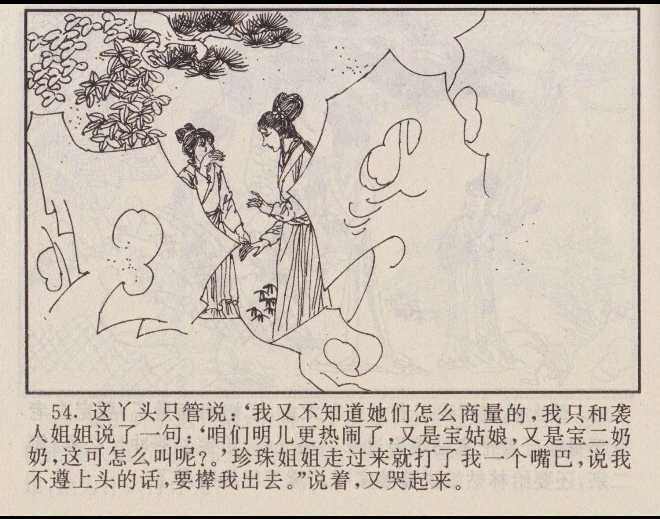 54. 这丫头只管说：‘我又不知道她们怎么商量的，我只和袭
人姐姐说了一句：‘咱们明儿更热闹了，又是宝姑娘，又是宝二奶
奶，这可怎么叫呢？。’珍珠姐姐走过来就打了我一个嘴巴，说我
不遵上头的话，要撵我出去。”说着，又哭起来。